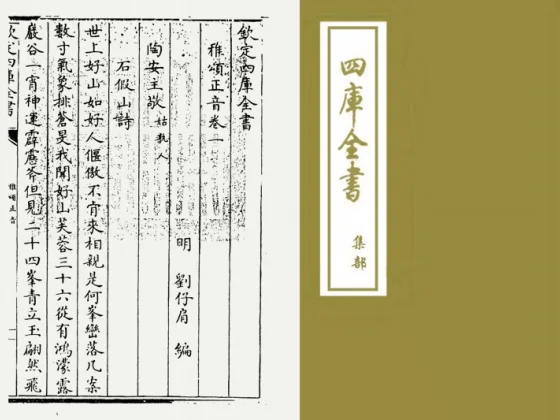 欽定四庫全書
雅頌正音卷一
明 劉仔肩 編
陶安主敬 姑孰人
石假山詩
世上好山如好人偃傲不肯來相親是何峯巒落几案
數寸氣象排蒼旻我聞好山芙蓉三十六從有鴻濛露
巖谷一宵神運霹靂斧但見二十四峯青立玉翩然飛
欽定四庫全書
雅頌正音
四庫全書
集部